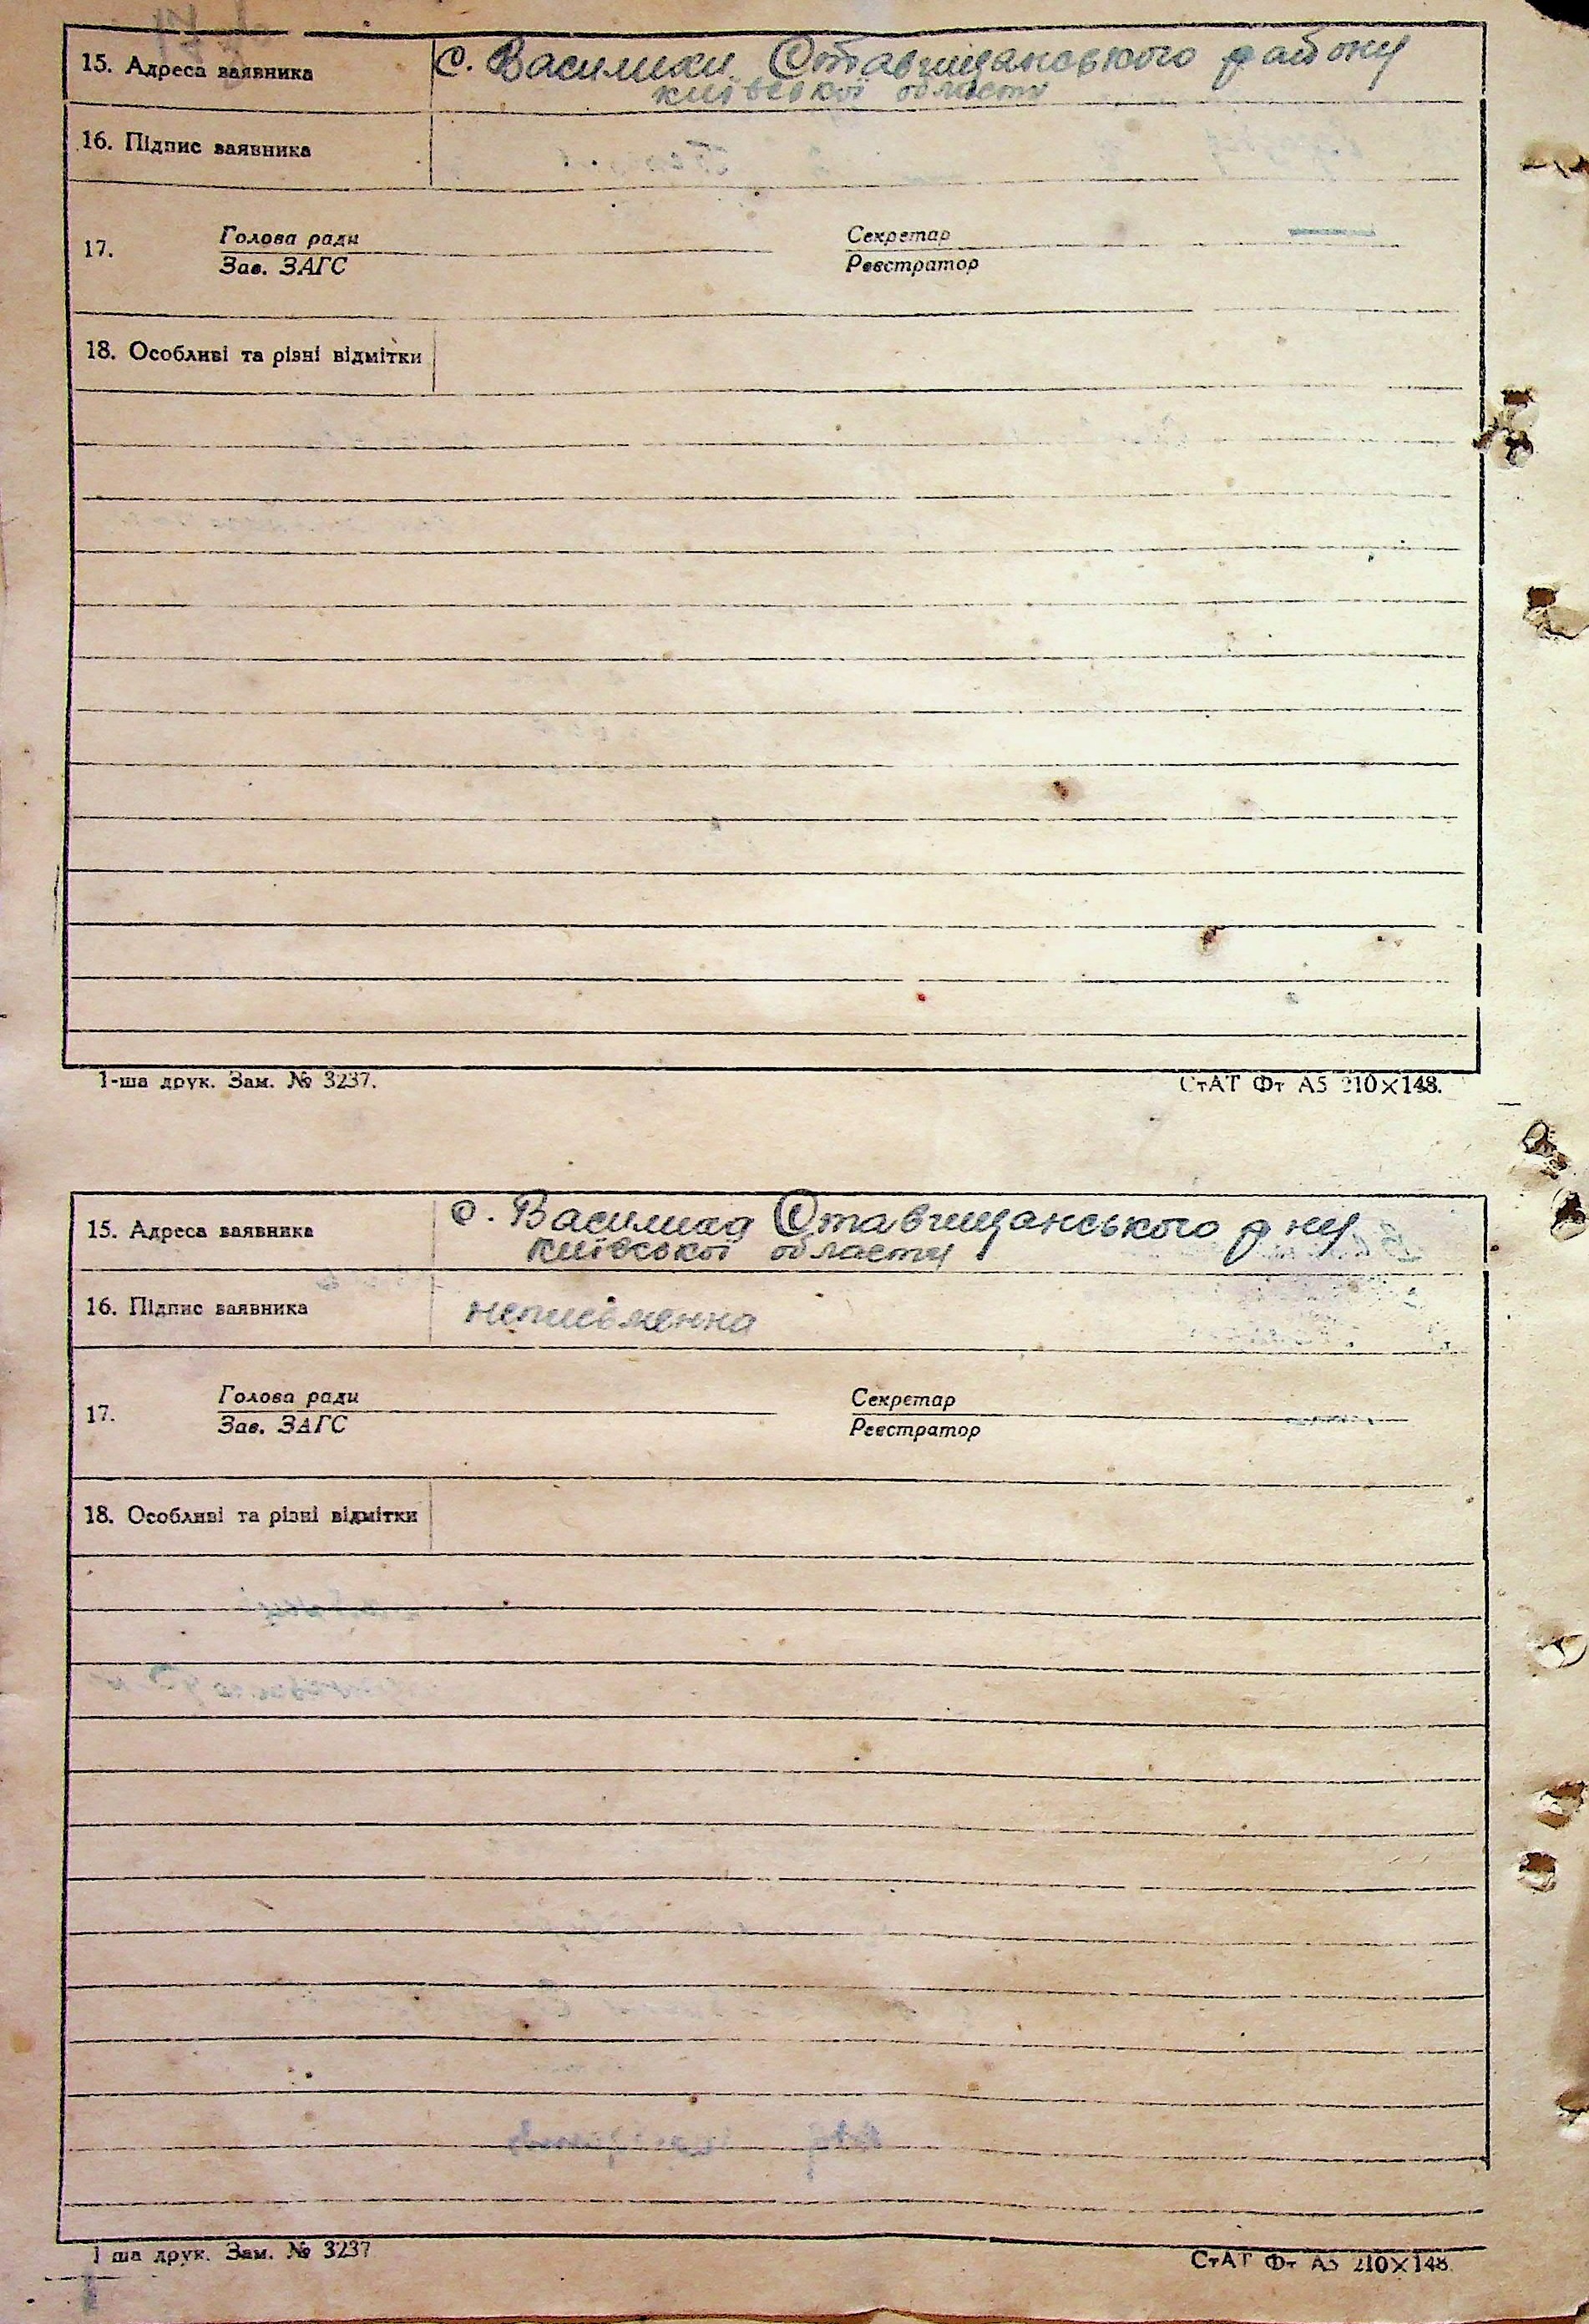 15. Адреса заявника с. Василиха Ставищанського району
київської області
16. Підпис заявника
17. Голова ради Секретар
Зав. ЗАГС Реєстратор
18. Особливі та різні відмітки
1-ша друк. Зам. № 3237. СтАТ Фт А5 210×148.
15. Адреса заявника с. Василиха Ставищанського р ну
київської області
16. Підпис заявника неписьменна
17. Голова ради Секретар
Зав. ЗАГС Реєстратор
18. Особливі та різні відмітки
1 ша друк. Зам. № 3237 СтАТ Фт А5 210×148